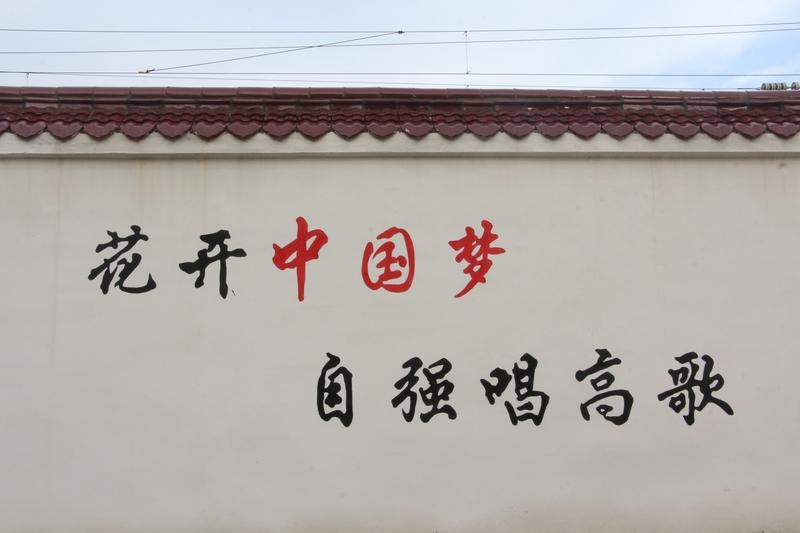 花开中国梦
自强唱高歌